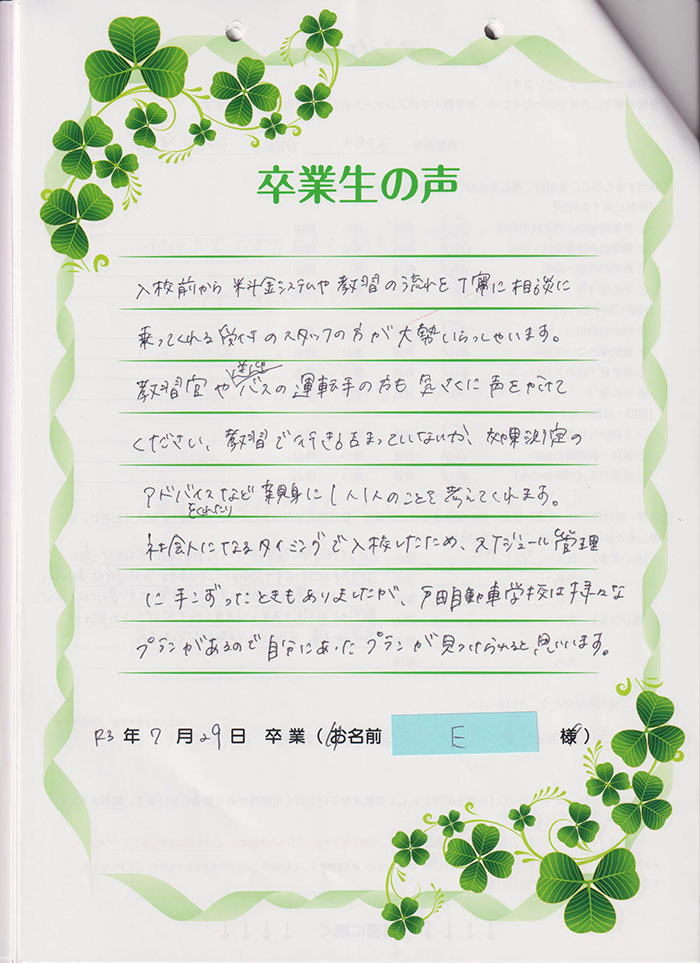 卒業生の声
入校前から料金システムや教習の流れを丁寧に相談に
乗ってくれる受付のスタッフの方が大勢いらっしゃいます。
教習官や送迎バスの運転手の方も気さくに声をかけて
ください、教習で行き詰まっていないか、効果測定の
アドバイスをくれたりなど親身に1人1人のことを考えてくれます。
社会人になるタイミングで入校したため、スケジュール管理
に手こずったときもありましたが、戸田自動車学校は様々な
プランがあるので自分にあったプランが見つけられると思います。
R3年7月29日 卒業(お名前 E 様)